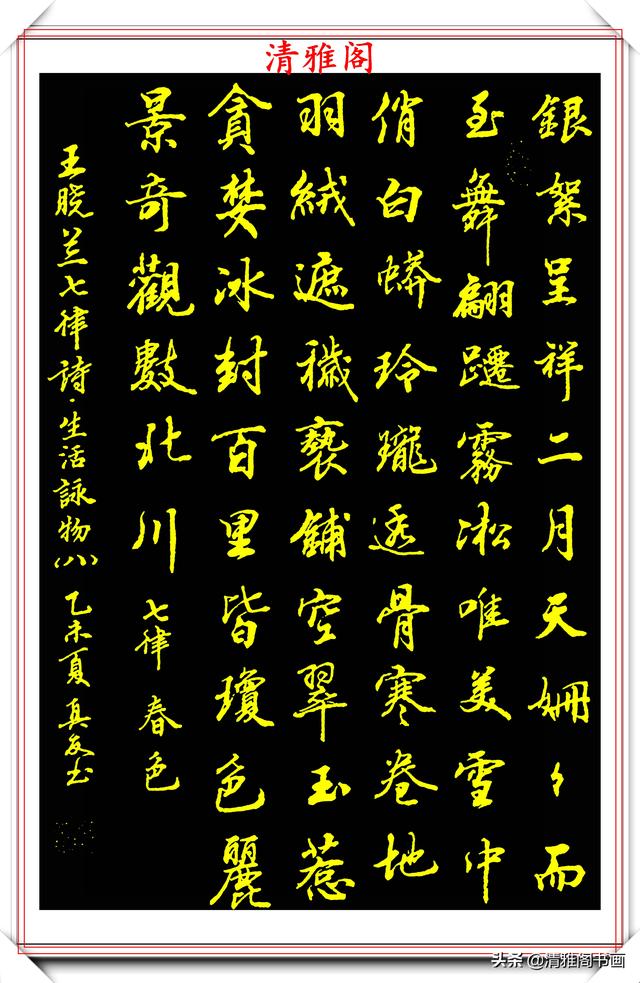 清雅阁
銀絮呈祥二月天姍々而
至舞翩躚霧凇唯美雪中
俏白蟒玲瓏透骨寒卷地
羽絨遮穢褻鋪空翠玉惹
貪婪冰封百里皆瓊色麗
景奇觀數北川 七律 春色
王晓兰七律詩·生活詠物(八) 乙未夏真友书
头条@清雅阁书画